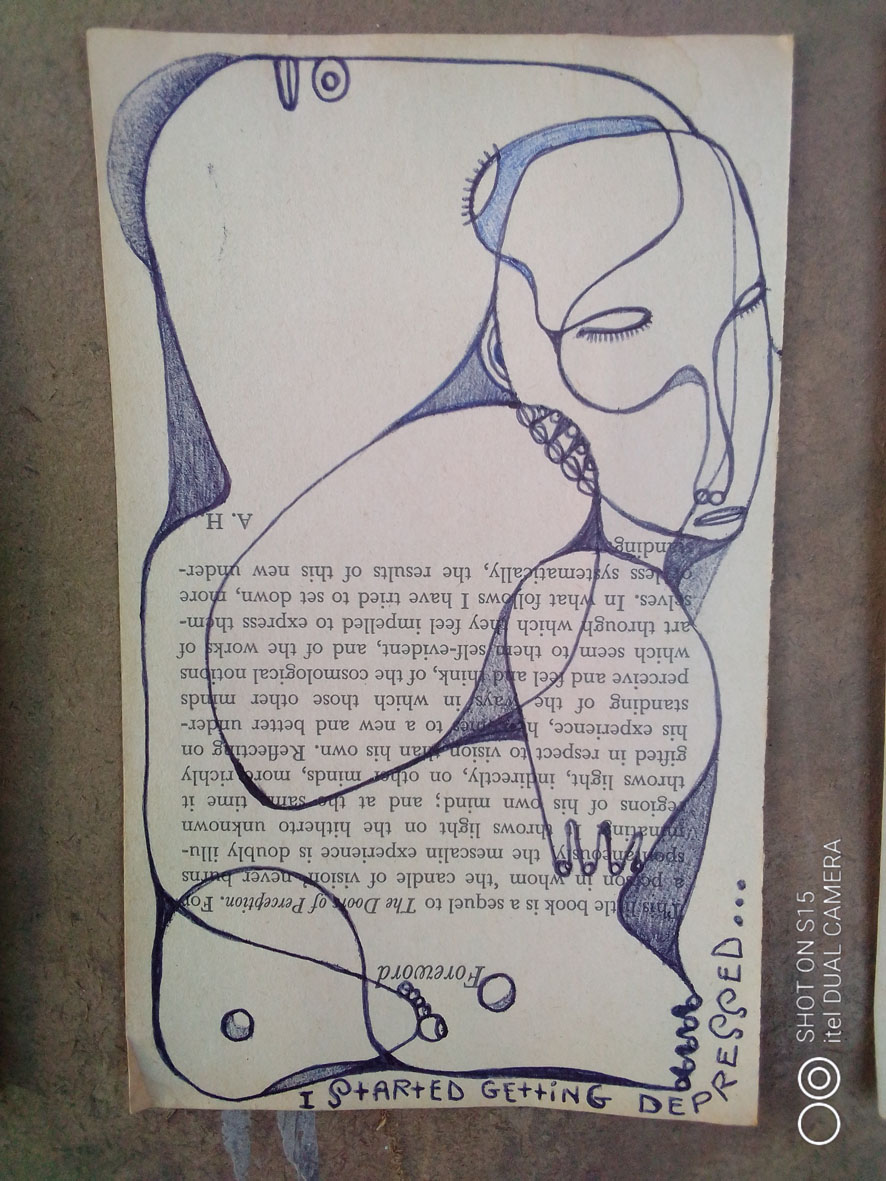 Foreword
This little book is a sequel to The Doors of Perception. For
a person in whom 'the candle of vision' never burns
spontaneously, the mescalin experience is doubly illu-
minating. It throws light on the hitherto unknown
regions of his own mind; and at the same time it
throws light, indirectly, on other minds, more richly
gifted in respect to vision than his own. Reflecting on
his experience, he comes to a new and better under-
standing of the ways in which those other minds
perceive and feel and think, of the cosmological notions
which seem to them self-evident, and of the works of
art through which they feel impelled to express them-
selves. In what follows I have tried to set down, more
or less systematically, the results of this new under-
standing.
A. H.
I STARTED GETTING DEPRESSED...
SHOT ON S15
itel DUAL CAMERA